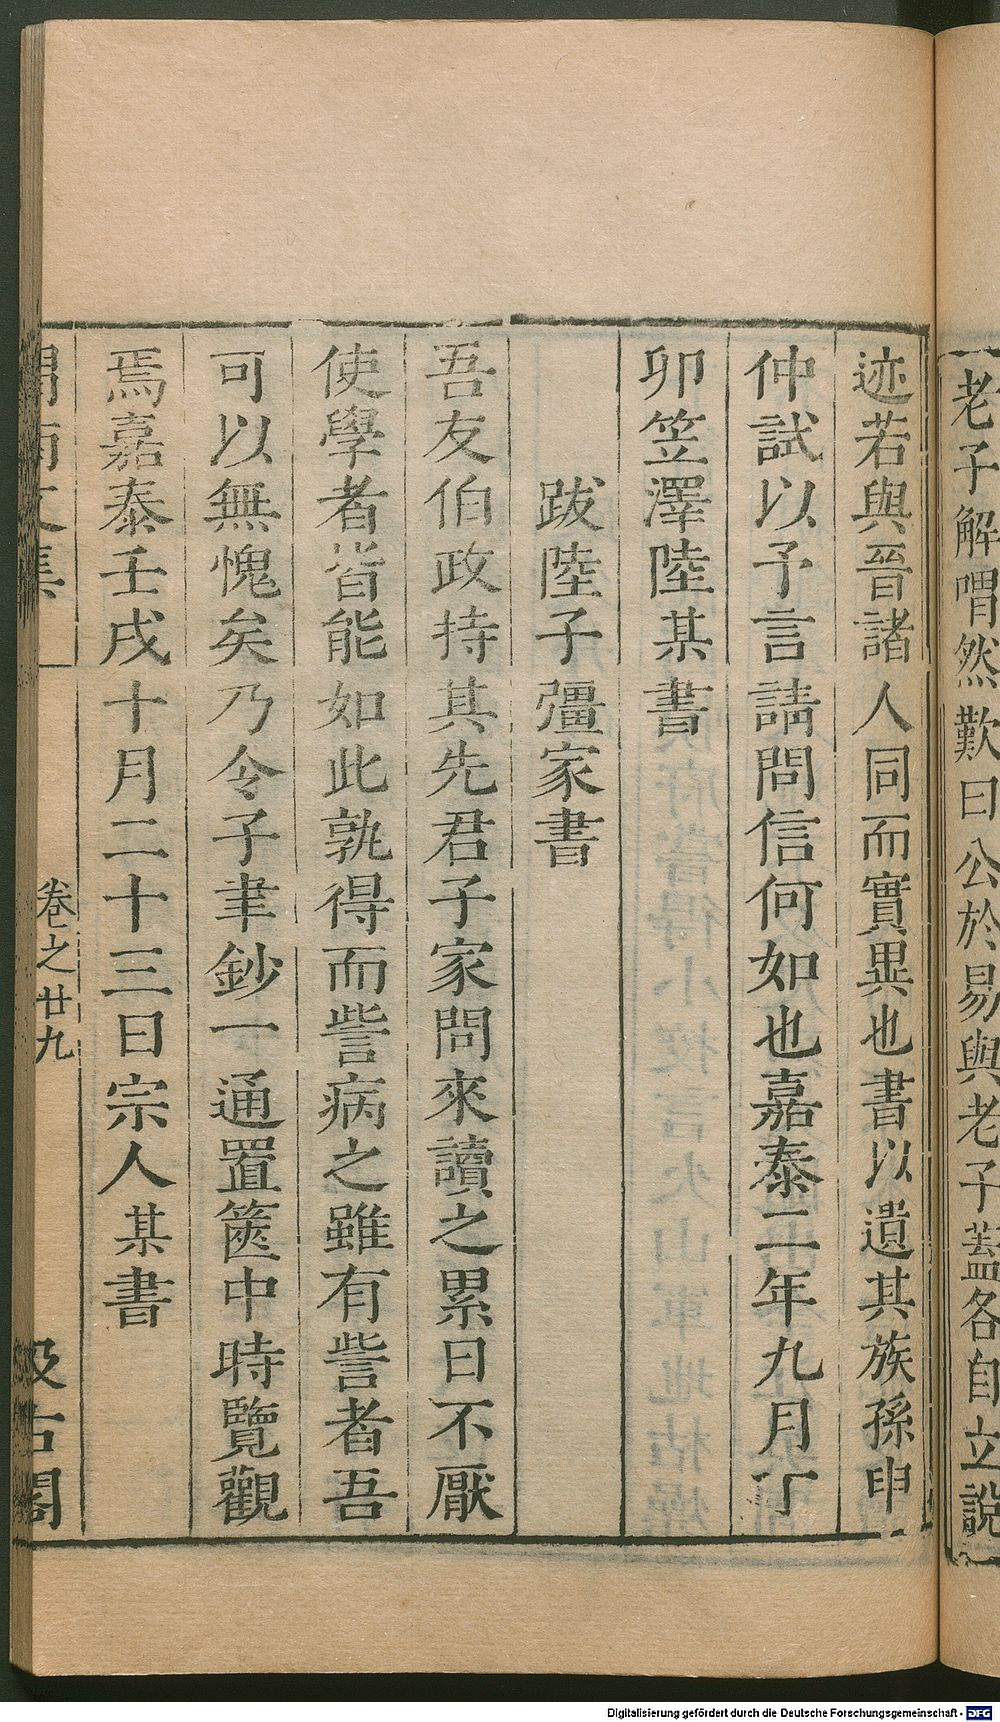 老子解喟然歎曰公於易與老子蓋各自立說
迹若與晉諸人同而實異也書以遺其族孫申
仲試以予言請問信何如也嘉泰二年九月丁
卯笠澤陸某書
跋陸子彊家書
吾友伯政持其先君子家問來讀之累日不厭
使學者皆能如此孰得而訾病之雖有訾者吾
可以無愧矣乃令子聿鈔一通置篋中時覽觀
焉嘉泰壬戌十月二十三日宗人某書
渭南文集 卷之廿九 汲古閣
Digitalisierung gefördert durch die Deutsche Forschungsgemeinschaft - DFG